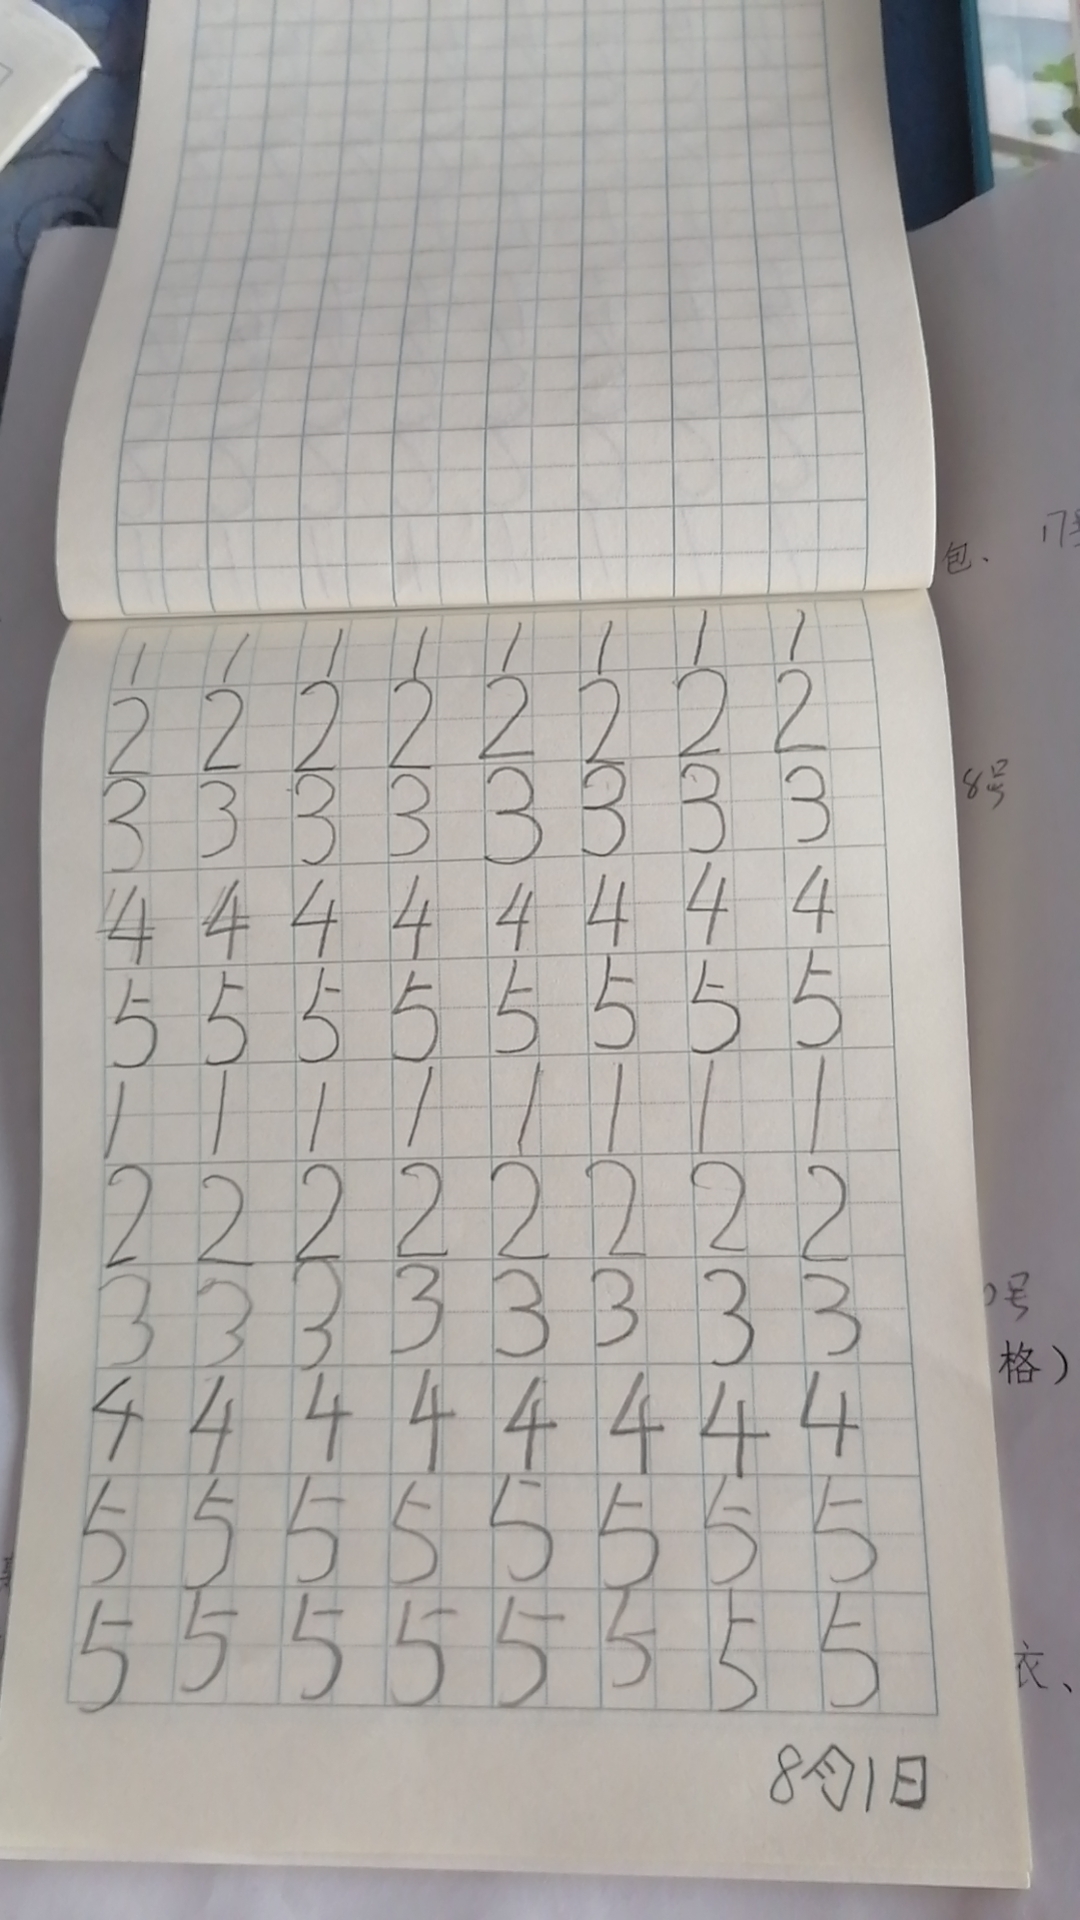 17号
包、
1 1 1 1 1 1 1 1
2 2 2 2 2 2 2 2
3 3 3 3 3 3 3 3
8号
4 4 4 4 4 4 4 4
5 5 5 5 5 5 5 5
1 1 1 1 1 1 1 1
2 2 2 2 2 2 2 2
3 3 3 3 3 3 3 3
号
格）
4 4 4 4 4 4 4 4
5 5 5 5 5 5 5 5
5 5 5 5 5 5 5 5
衣、
8月1日